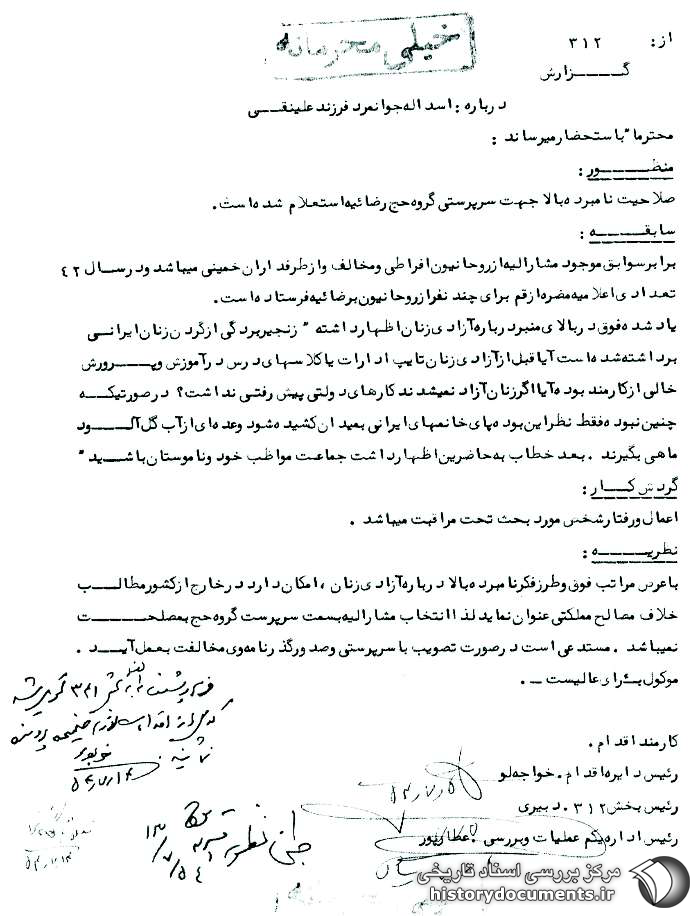 خیلی محرمانه
از: ۳۱۲
گزارش
درباره: اسداله جوانمرد فرزند علینقی
محترما" باستحضار میرساند:
منظور:
صلاحیت نامبرده بالا جهت سرپرستی گروه حج رضائیه استعلام شده است.
سابقه:
برابر سوابق موجود مشارالیه از روحانیون افراطی و مخالف و از طرفداران خمینی میباشد و در سال ٤٢
تعدادی اعلامیه مضره از قم برای چند نفر از روحانیون برضائیه فرستاده است.
یاد شده فوق در بالای منبر درباره آزادی زنان اظهار داشته " زنجیر بردگی از گردن زنان ایرانی
برداشته شده است آیا قبل از آزادی زنان تایپ ادارات یا کلاسهای درس در آموزش و پرورش
خالی از کارمند بوده آیا اگر زنان آزاد نمیشدند کارهای دولتی پیش رفتی نداشت؟ در صورتیکه
چنین نبوده فقط نظر این بوده پای خانمهای ایرانی بمیدان کشیده شود و عده ای از آب گل آلود
ماهی بگیرند. بعد خطاب به حاضرین اظهار داشت جماعت مواظب خود و ناموستان باشید"
گردش کار:
اعمال و رفتار شخص مورد بحث تحت مراقبت میباشد.
نظریه:
با عرض مراتب فوق و طرز فکر نامبرده بالا درباره آزادی زنان، امکان دارد در خارج از کشور مطالب
خلاف مصالح مملکتی عنوان نماید لذا انتخاب مشارالیه بسمت سرپرست گروه حج بمصلحت
نمیباشد. مستدعی است در صورت تصویب با سرپرستی و صدور گذرنامه وی مخالفت بعمل آید.
موکول برای عالیست.
کارمند اقدام.
رئیس دایره اقدام. خواجه لو
رئیس بخش ۳۱۲. دبیری
رئیس اداره یکم عملیات و بررسی. عطارپور
مرکز بررسی اسناد تاریخی
historydocuments.ir